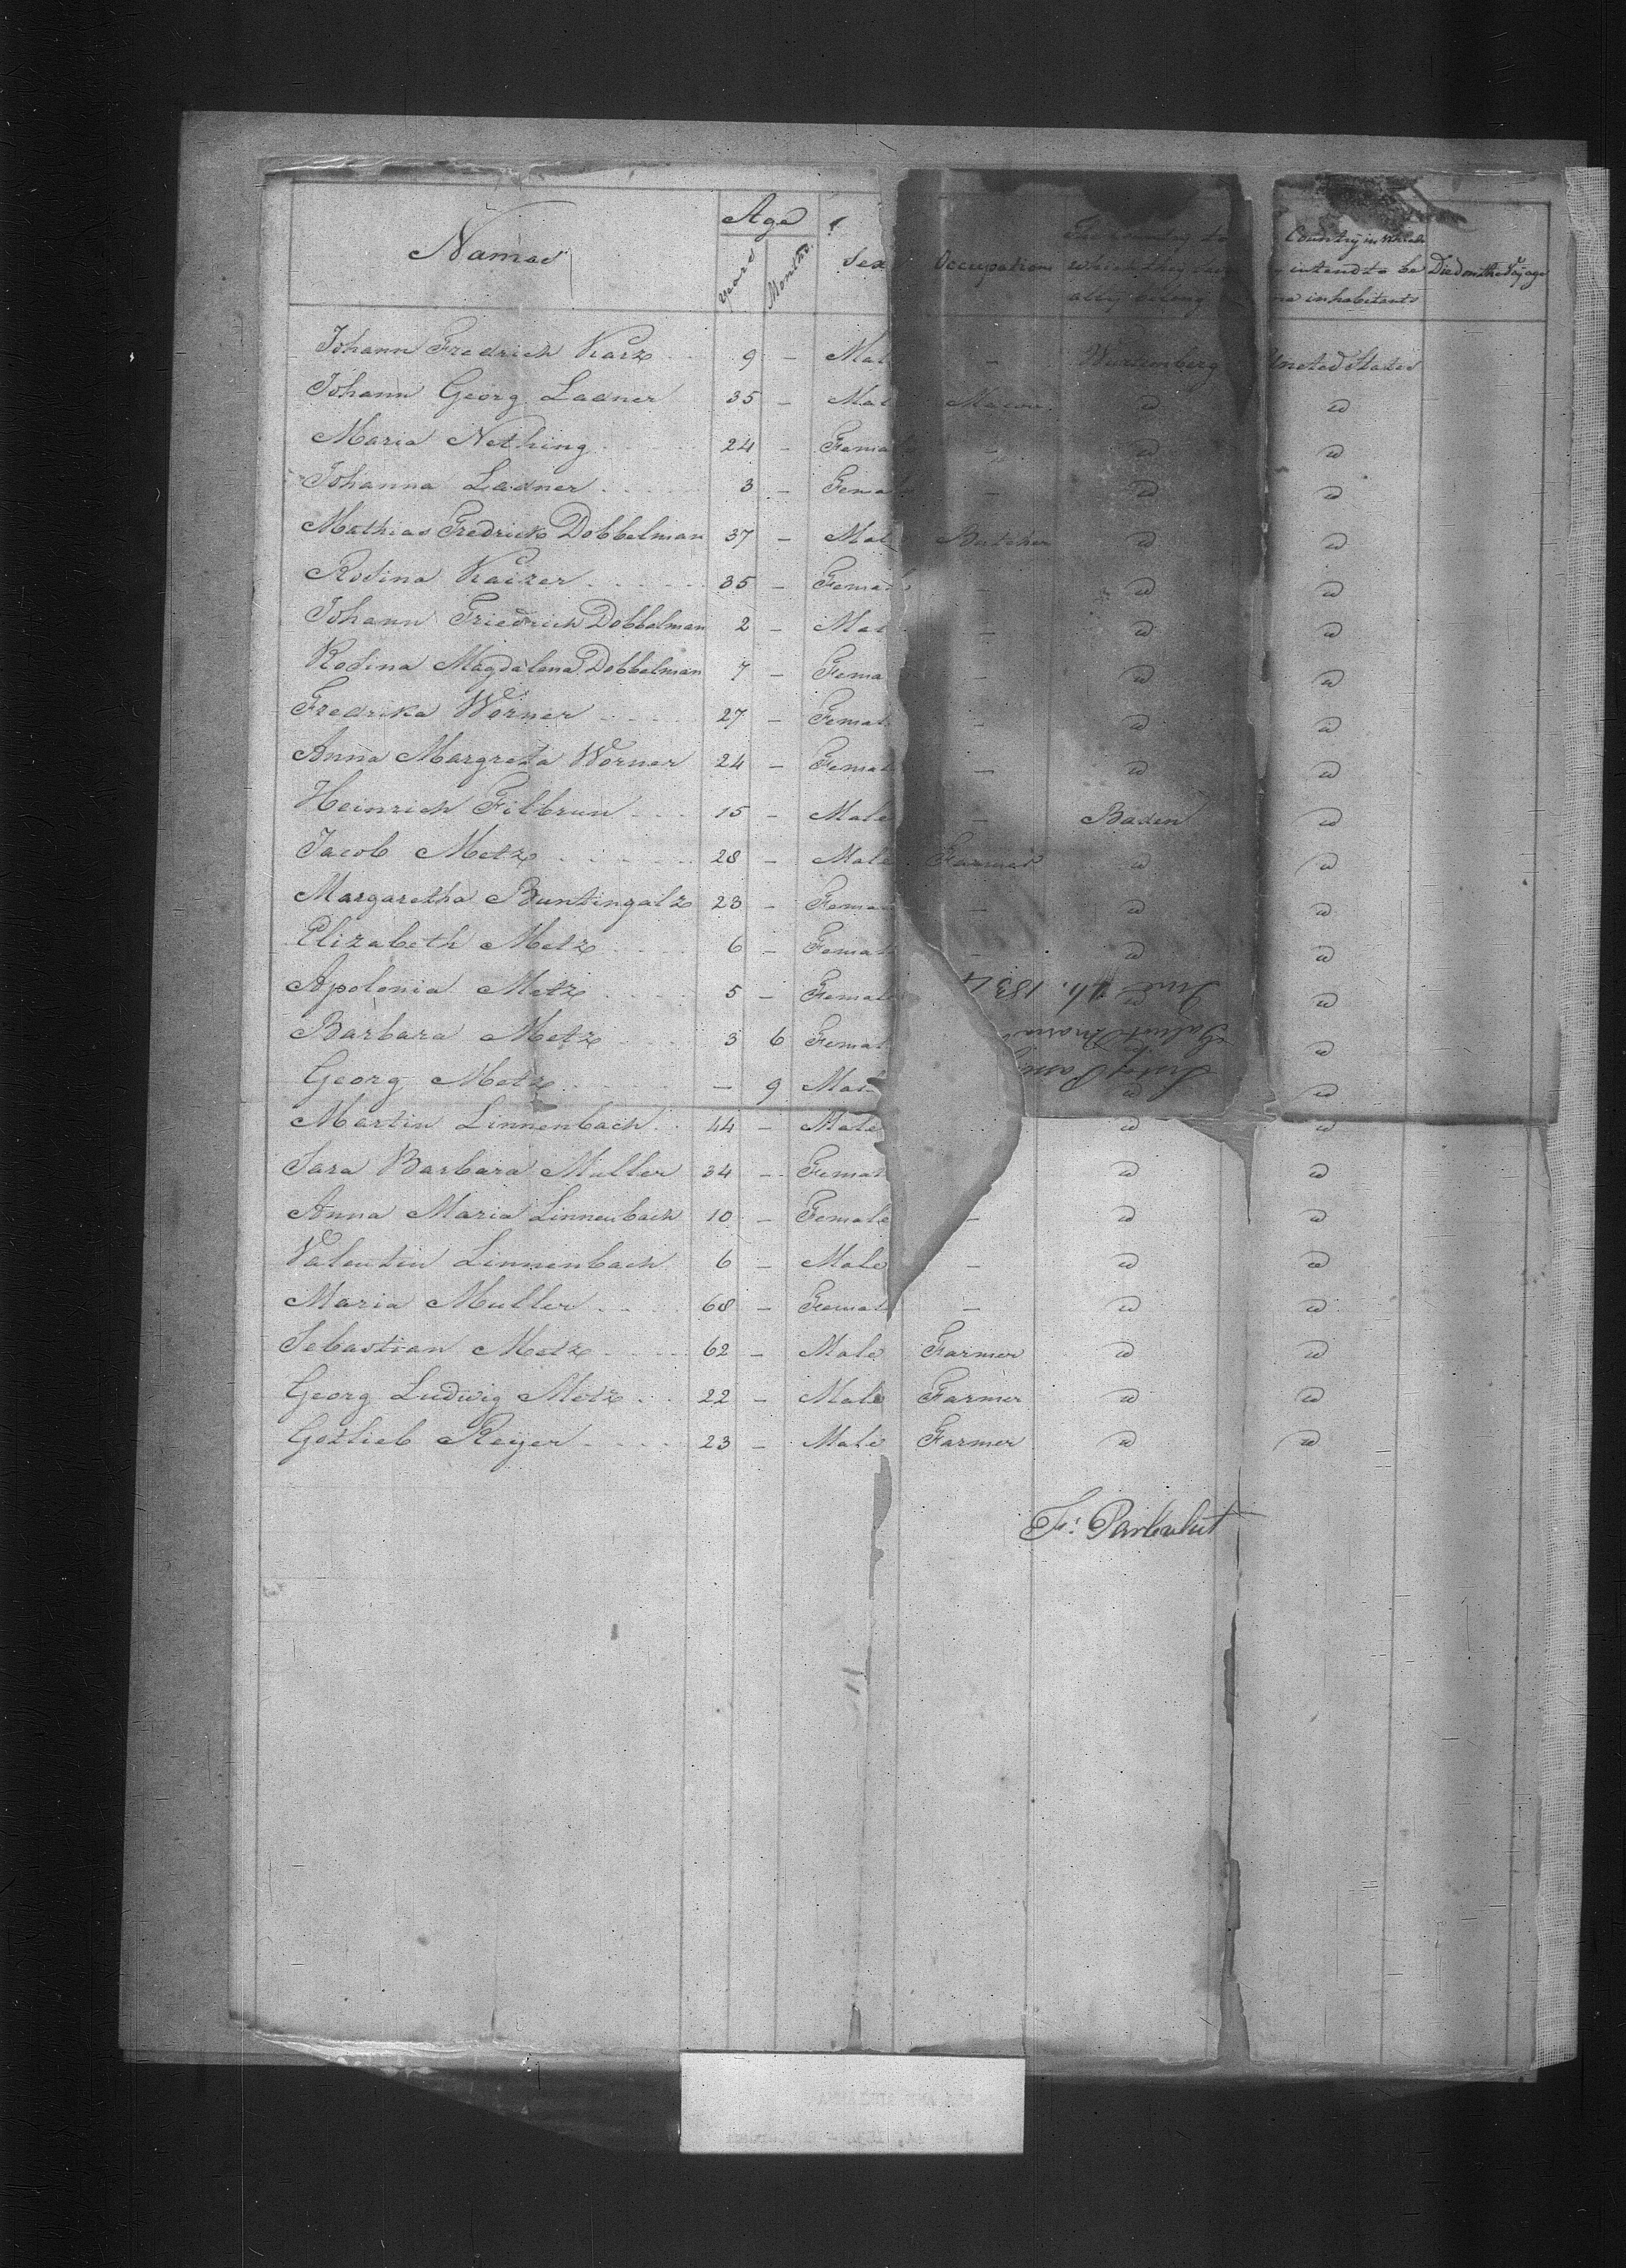 Names Age Sex Occupation The country to which they usu ally belong Country in which intend to be inhabitants Died on the Voyage
Years Months
Johann Fredrich Karz 9 - Mal - Wurtemberg United States
Johann Georg Ladner 35 - Mal Mason d d
Maria Nething 24 - Femal - d d
Johanna Ladner 3 - Femal - d d
Mathias Fredrick Dobbelman 37 - Mal Butcher d d
Rosina Kaizer 35 - Femal - d d
Johann Friedrich Dobbelman 2 - Mal - d d
Rosina Magdalena Dobbelman 7 - Fema - d d
Fredrika Wörner 27 - Femal - d d
Anna Margreta Worner 24 - Femal - d d
Heinrich Filbrun 15 - Male - Baden d
Jacob Metz 28 - Male Farmer d d
Margaretha Buntingalz 23 - Femal - d d
Elizabeth Metz 6 - Femal - d d
Apolonia Metz 5 - Female d d
Barbara Metz 3 6 Femal d
Georg Metz - 9 Mal d d
Martin Linnenbach 44 - Male d d
Sara Barbara Muller 34 - Femal d d
Anna Maria Linnenbach 10 - Female - d d
Valentin Linnenbach 6 - Male - d d
Maria Muller 68 - Femal - d d
Sebastian Metz 62 - Male Farmer d d
Georg Ludwig Metz 22 - Male Farmer d d
Gotlieb Reyer 23 - Male Farmer d d
1834